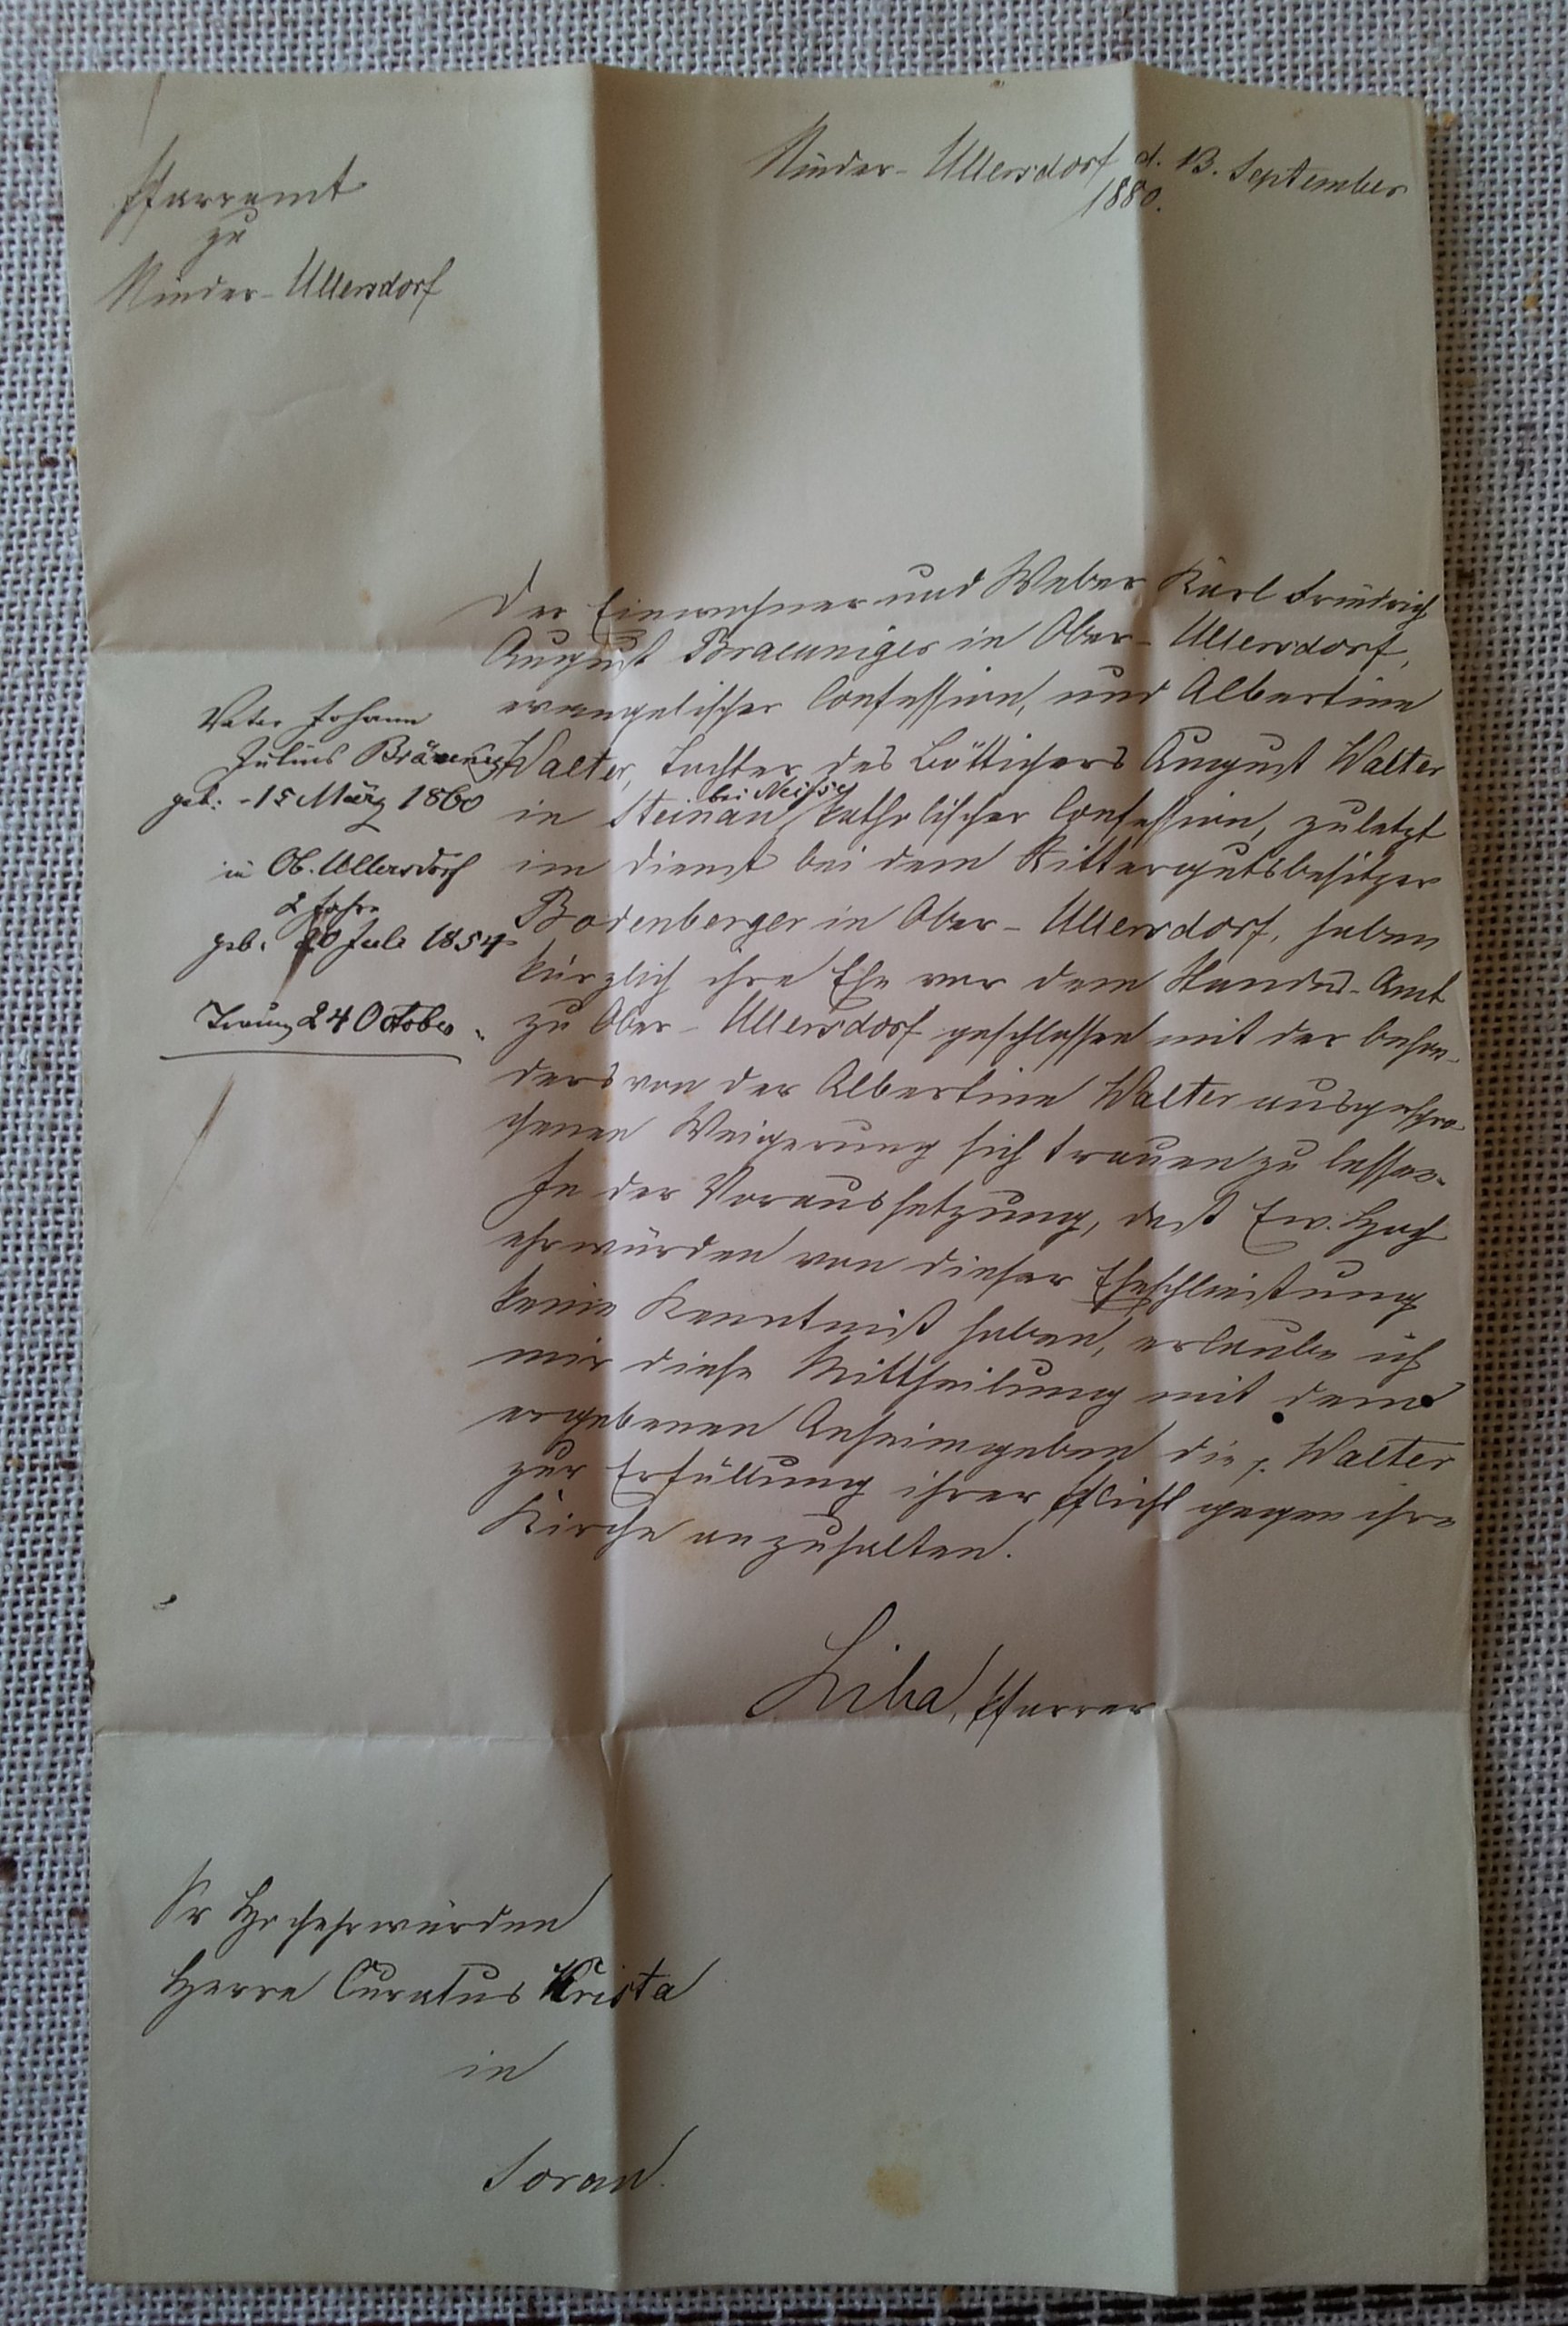 Pfarramt
zu
Nieder-Ullersdorf
Nieder-Ullersdorf d. 13. September
1880.
Der Einwohner und Weber Karl Friedrich
August Braeuniger in Ober-Ullersdorf,
evangelischer Confession, und Albertine
Walter, Tochter des Böttichers August Walter
in Steinau bei Neisse katholischer Confession, zuletzt
im Dienst bei dem Rittergutsbesitzer
Bodenberger in Ober-Ullersdorf, haben
kürzlich ihre Ehe vor dem Standes-Amt
zu Ober-Ullersdorf geschlossen mit der beson-
ders von der Albertine Walter ausgespro-
chenen Weigerung sich trauen zu lassen.
In der Voraussetzung, daß Ew. Hoch
ehrwürden von dieser Eheschließung
keine Kenntniß haben, erlaube ich
mir diese Mittheilung mit dem
ergebenen Anheimgeben die p. Walter
zur Erfüllung ihrer Pflicht gegen ihre
Kirche anzuhalten.
Liba, Pfarrer
Vater Johann
Julius Bräunig
geb: - 15 März 1860
in Ob. Ullersdorf
2 Jahre
geb. 20 Juli 1854
Trauung 24 October
Sr Hochehrwürden
Herrn Curatus Krista
in
Sorau.